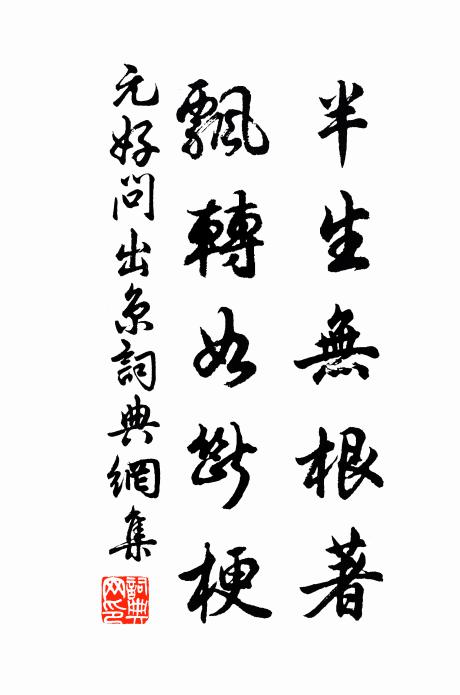 半生無根著
飄轉如斷梗
元好問出京詞典網集
詞典網印